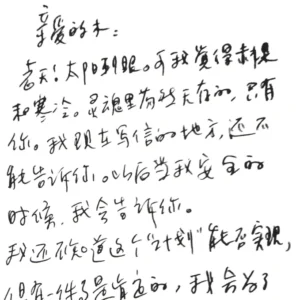 亲爱的木：
苍天！太阳刺眼。可我觉得未是
和寒冷。灵魂里存然无存的，只有
你。我现在写信的地方，还不
能告诉你。以后当我安全的
时候，我会告诉你。
我还不知道这个“计划”能否实现，
但有一件事是肯定的，我会为了